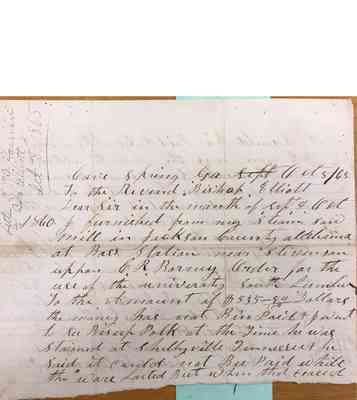 Cave Spring Ga Sept Oct 5/65
To the Reverend Bishop Elliott
Dear Sir in the month of Sept & Oct
1860 I furnished from my Steam saw
mill in Jackson County Alabama
at Bass Station near Stevenson
uppon C R Order for the
use of the university South Lumber
To the Amount of $535-54 Dollars
the money has not Bin Paid
to see Bishop Polk at the Time he was
at Shelbyville Tennessee & he
said it could not Bee Paid while
the ware Lasted But when that